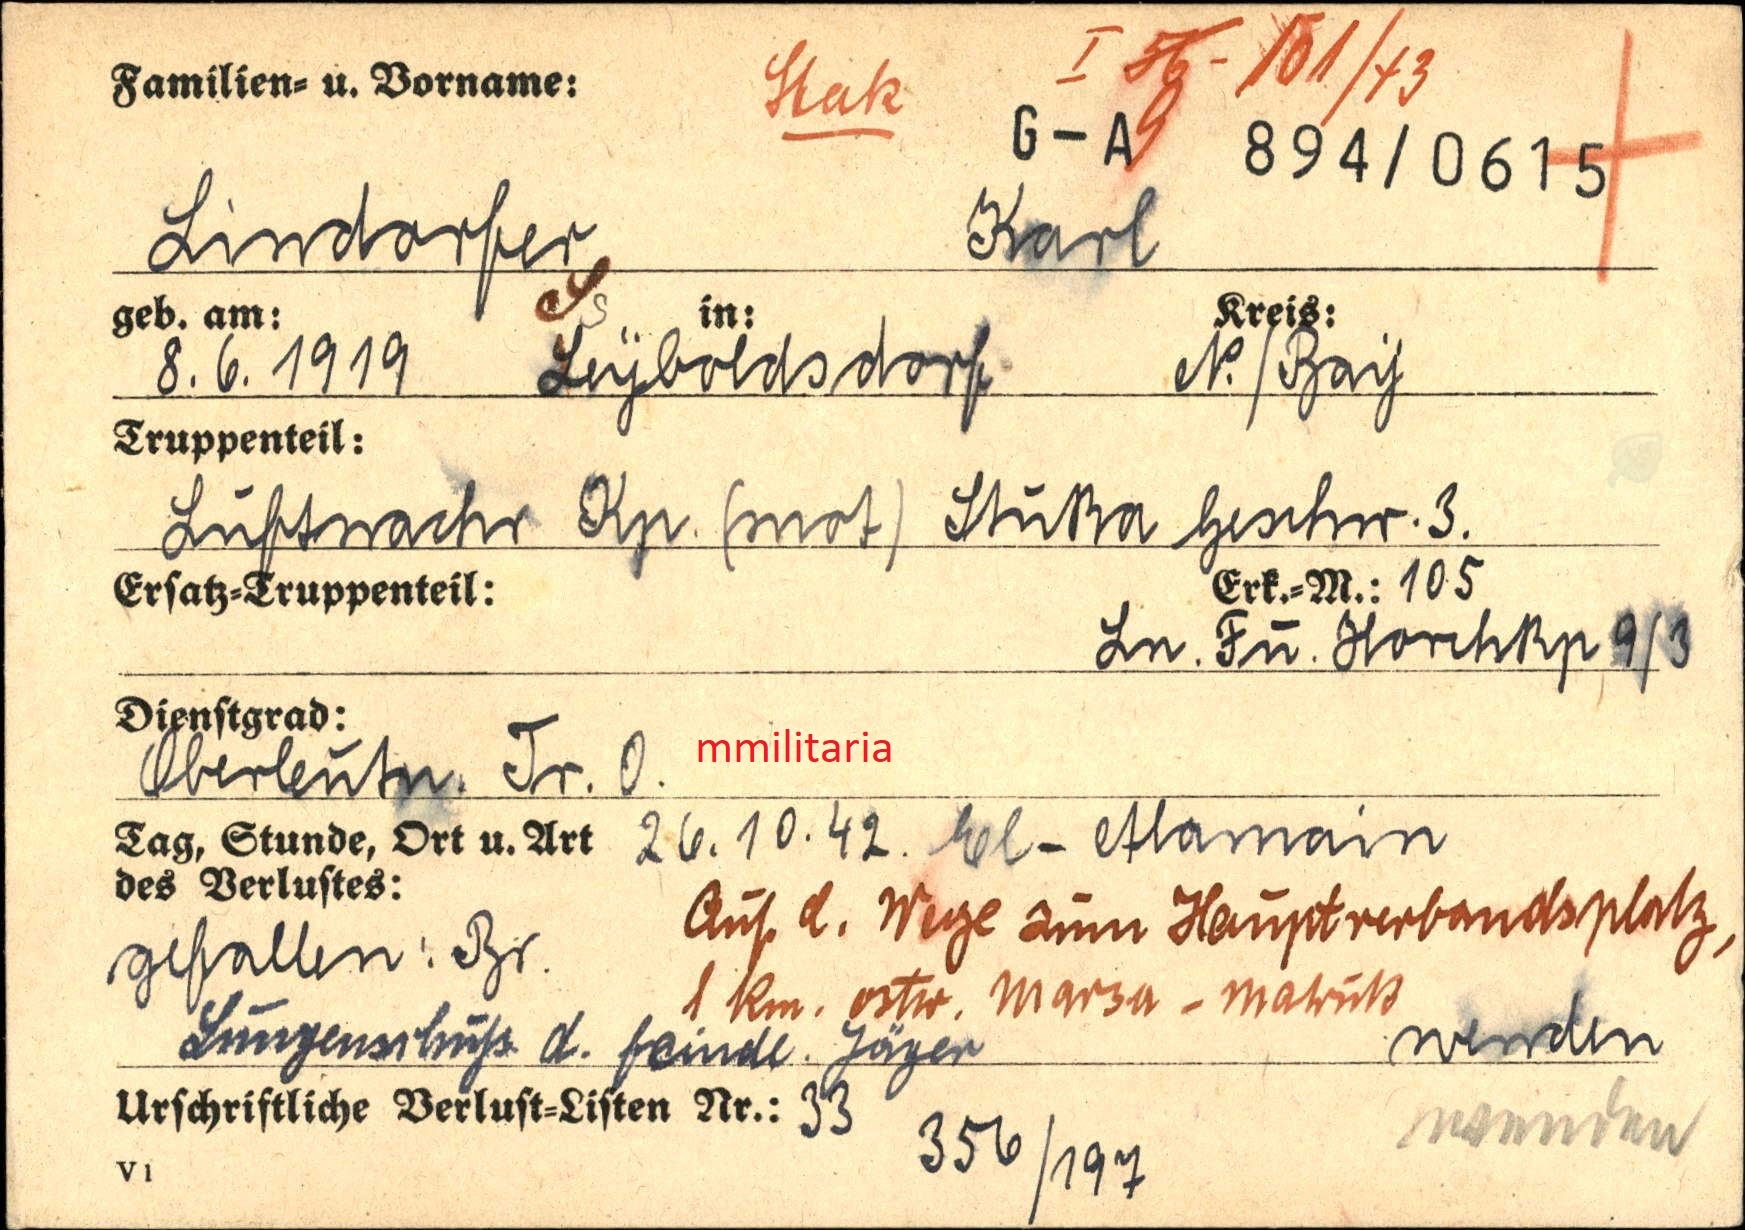 Familien- u. Vorname:
Stak
I 56 - 101/43
G-A 894/0615
Lindorfer Karl
geb. am: in: Kreis:
8.6.1919 Leÿboldsdorf N./Bay
Truppenteil:
Luftnachr Kp. (mot) Stuka Geschw. 3.
Ersatz-Truppenteil: Erk.-M.: 105
Ln. Fu. Horchkp 9/3
Dienstgrad:
Oberleutn. Tr. O.
mmilitaria
Tag, Stunde, Ort u. Art 26.10.42. El-Alamain
des Verlustes:
Auf d. Wege zum Hauptverbandsplatz,
gefallen: Br.
1 km. ostw. Marsa-Matruk
Lungenschuß d. feindl. Jäger wenden
Urschriftliche Verlust-Listen Nr.: 33
356/197
wenden
V 1